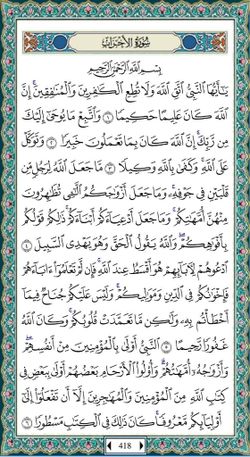 سُورَةُ الأَحْزَابِ
بِسْمِ اللَّهِ الرَّحْمَٰنِ الرَّحِيمِ
يَٰٓأَيُّهَا النَّبِيُّ اتَّقِ اللَّهَ وَلَا تُطِعِ الْكَٰفِرِينَ وَالْمُنَٰفِقِينَ ۗ إِنَّ
اللَّهَ كَانَ عَلِيمًا حَكِيمًا ١ وَاتَّبِعْ مَا يُوحَىٰٓ إِلَيْكَ
مِن رَّبِّكَ ۚ إِنَّ اللَّهَ كَانَ بِمَا تَعْمَلُونَ خَبِيرًا ٢ وَتَوَكَّلْ
عَلَى اللَّهِ ۚ وَكَفَىٰ بِاللَّهِ وَكِيلًا ٣ مَّا جَعَلَ اللَّهُ لِرَجُلٍ مِّن
قَلْبَيْنِ فِي جَوْفِهِۦ ۚ وَمَا جَعَلَ أَزْوَٰجَكُمُ الَّٰٓـِٔي تُظَٰهِرُونَ
مِنْهُنَّ أُمَّهَٰتِكُمْ ۚ وَمَا جَعَلَ أَدْعِيَآءَكُمْ أَبْنَآءَكُمْ ۚ ذَٰلِكُمْ قَوْلُكُم
بِأَفْوَٰهِكُمْ ۖ وَاللَّهُ يَقُولُ الْحَقَّ وَهُوَ يَهْدِي السَّبِيلَ ٤
ادْعُوهُمْ لِأٓبَآئِهِمْ هُوَ أَقْسَطُ عِندَ اللَّهِ ۚ فَإِن لَّمْ تَعْلَمُوٓا ءَابَآءَهُمْ
فَإِخْوَٰنُكُمْ فِي الدِّينِ وَمَوَٰلِيكُمْ ۚ وَلَيْسَ عَلَيْكُمْ جُنَاحٌ فِيمَآ
أَخْطَأْتُم بِهِۦ وَلَٰكِن مَّا تَعَمَّدَتْ قُلُوبُكُمْ ۚ وَكَانَ اللَّهُ
غَفُورًا رَّحِيمًا ٥ النَّبِيُّ أَوْلَىٰ بِالْمُؤْمِنِينَ مِنْ أَنفُسِهِمْ ۖ
وَأَزْوَٰجُهُۥٓ أُمَّهَٰتُهُمْ ۗ وَأُولُوا الْأَرْحَامِ بَعْضُهُمْ أَوْلَىٰ بِبَعْضٍ فِي
كِتَٰبِ اللَّهِ مِنَ الْمُؤْمِنِينَ وَالْمُهَٰجِرِينَ إِلَّآ أَن تَفْعَلُوٓا إِلَىٰٓ
أَوْلِيَآئِكُم مَّعْرُوفًا ۚ كَانَ ذَٰلِكَ فِي الْكِتَٰبِ مَسْطُورًا ٦
418